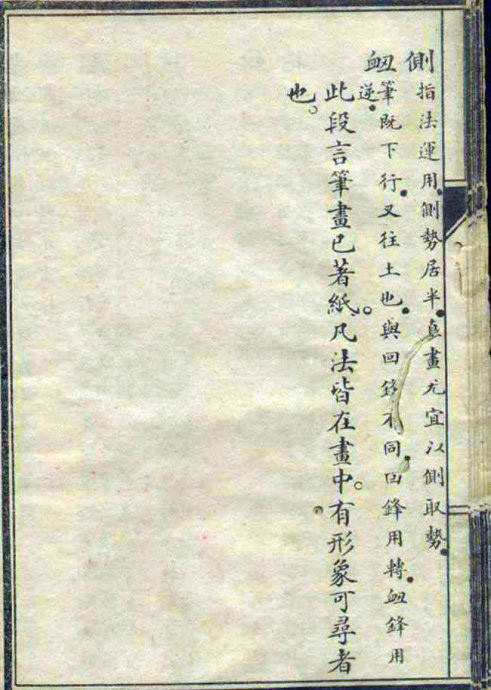 側指法運用。側勢居半。直畫尤宜以側取勢。
衄筆既下行。又往土也。與回鋒不同。回鋒用轉。衄鋒用
逆。
此段言筆畫已著紙。凡法皆在畫中。有形象可尋者
也。